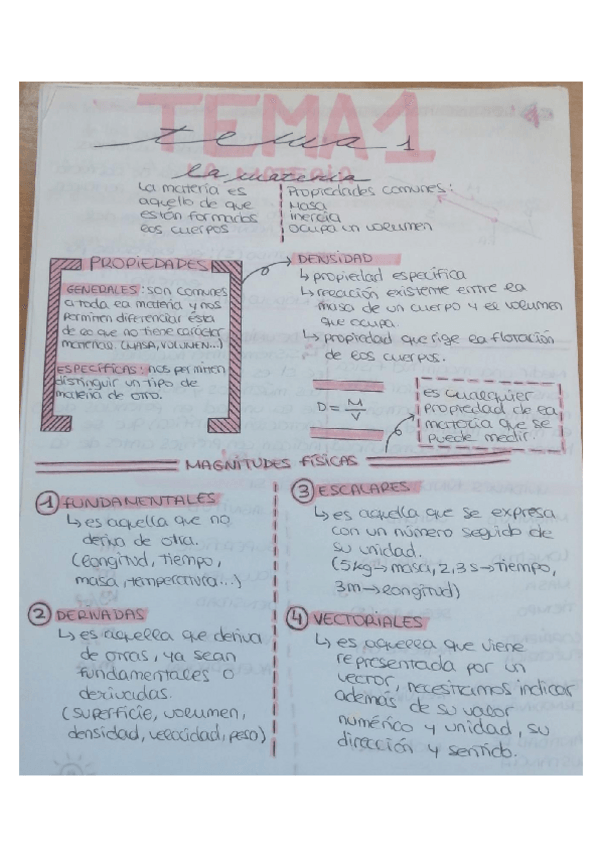 TEMA 1
tema 1
LA MATERIA
la materia
La materia es
aquello de que
están formados
los cuerpos
Propiedades comunes:
Masa
Inercia
Ocupa un volumen
PROPIEDADES
GENERALES: son comunes
a toda la materia y nos
permiten diferenciar ésta
de lo que no tiene carácter
material. (MASA, VOLUMEN...)
ESPECÍFICAS: nos permiten
distinguir un tipo de
materia de otro.
DENSIDAD
↳ propiedad específica
↳ relación existente entre la
masa de un cuerpo y el volumen
que ocupa.
↳ propiedad que rige la flotación
de los cuerpos.
D = M/V
es cualquier
propiedad de la
materia que se
puede medir.
MAGNITUDES FÍSICAS
1 FUNDAMENTALES
↳ es aquella que no
deriva de otra.
(longitud, tiempo,
masa, temperatura...)
2 DERIVADAS
↳ es aquella que deriva
de otras, ya sean
fundamentales o
derivadas.
(superficie, volumen,
densidad, velocidad, peso)
3 ESCALARES
↳ es aquella que se expresa
con un número seguido de
su unidad.
(5kg→masa, 2,3s→tiempo,
3m→longitud)
4 VECTORIALES
↳ es aquella que viene
representada por un
vector, necesitamos indicar
además de su valor
numérico y unidad, su
dirección y sentido.